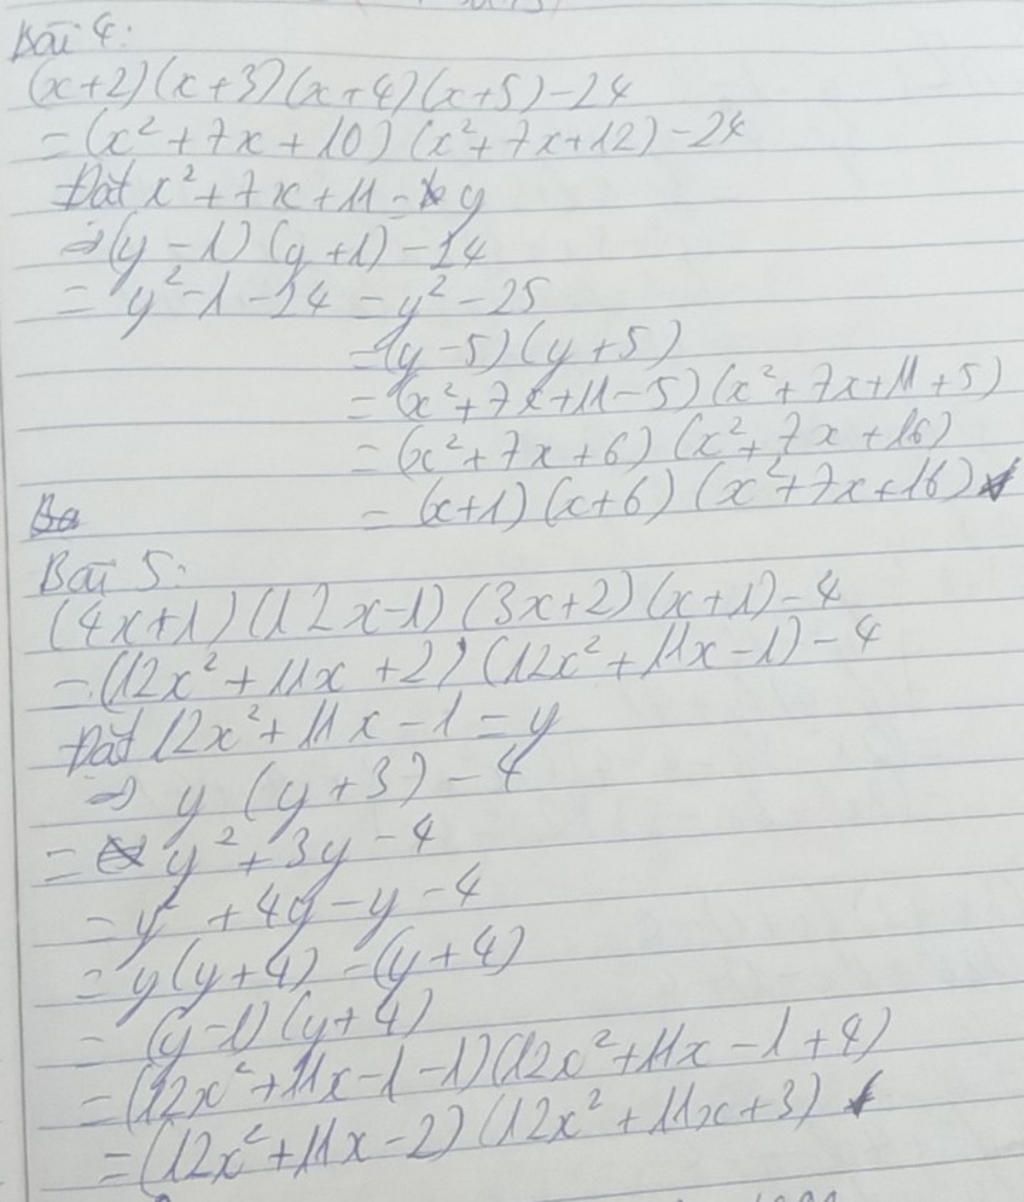 Bài 4:
(x+2)(x+3)(x+4)(x+5)-24
=(x²+7x+10)(x²+7x+12)-24
Đặt x²+7x+11=y
⇒(y-1)(y+1)-24
= y²-1-24 = y²-25
=(y-5)(y+5)
=(x²+7x+11-5)(x²+7x+11+5)
=(x²+7x+6)(x²+7x+16)
=(x+1)(x+6)(x²+7x+16)
Bài 5:
(4x+1)(12x-1)(3x+2)(x+1)-4
=(12x²+11x+2)(12x²+11x-1)-4
Đặt 12x²+11x-1=y
⇒ y(y+3)-4
= y²+3y-4
= y²+4y-y-4
= y(y+4)-(y+4)
= (y-1)(y+4)
=(12x²+11x-1-1)(12x²+11x-1+4)
=(12x²+11x-2)(12x²+11x+3)